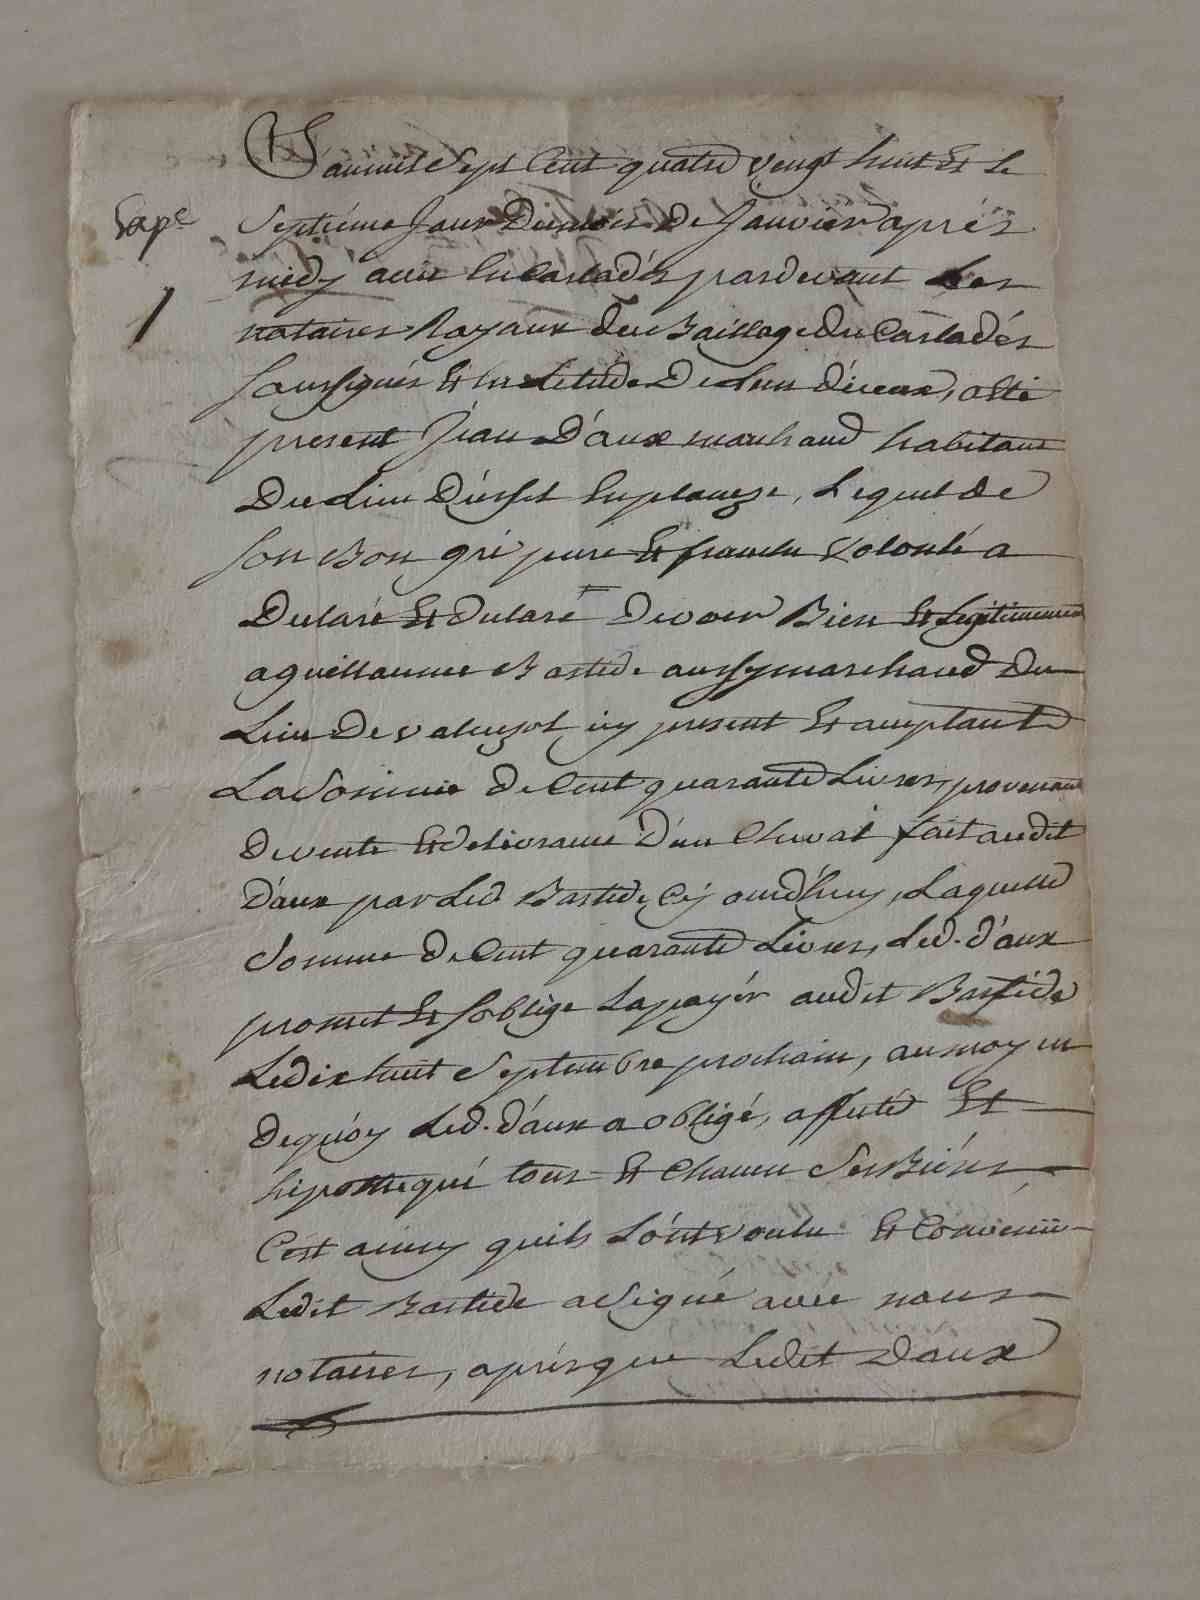 L'an mil Sept Cent quatre vengt huit Et le
Exp.e
Septiéme Jour Du mois De Janvier aprés
midy avec En Carladés pardevant Les
notaires Royaux du Baillage Du Carladés
Soussignés Et
present Jean D'aux marchand habitant
Du Lieu en planeze, Lequel de
Son Bon gré pure Et franche Volonté a
Declaré Et Declaré Devoir Bien Et Legitimement
a guillaume Bastide aussy marchand Du
Lieu De valuejol icy present Et aceptant
La Somme de Cent quarante Livres, provenant
De vente Et delivrance D'un Cheval fait audit
D'aux par Led Bastide Cejourd'huy, Laquelle
Somme de Cent quarante Livres, Led. d'aux
promet Et S'oblige La payér audit Bastide
Le dix huit Septembre prochain, au moyen
Dequóy Led. d'aux a obligé, affecté Et
hipothequé tous Et Chacun Ses Biéns
C'est ainsy quils L'ont voulu Et Convenu
Ledit Bastide a Signé avec nous
notaires, aprés que Ledit Daux